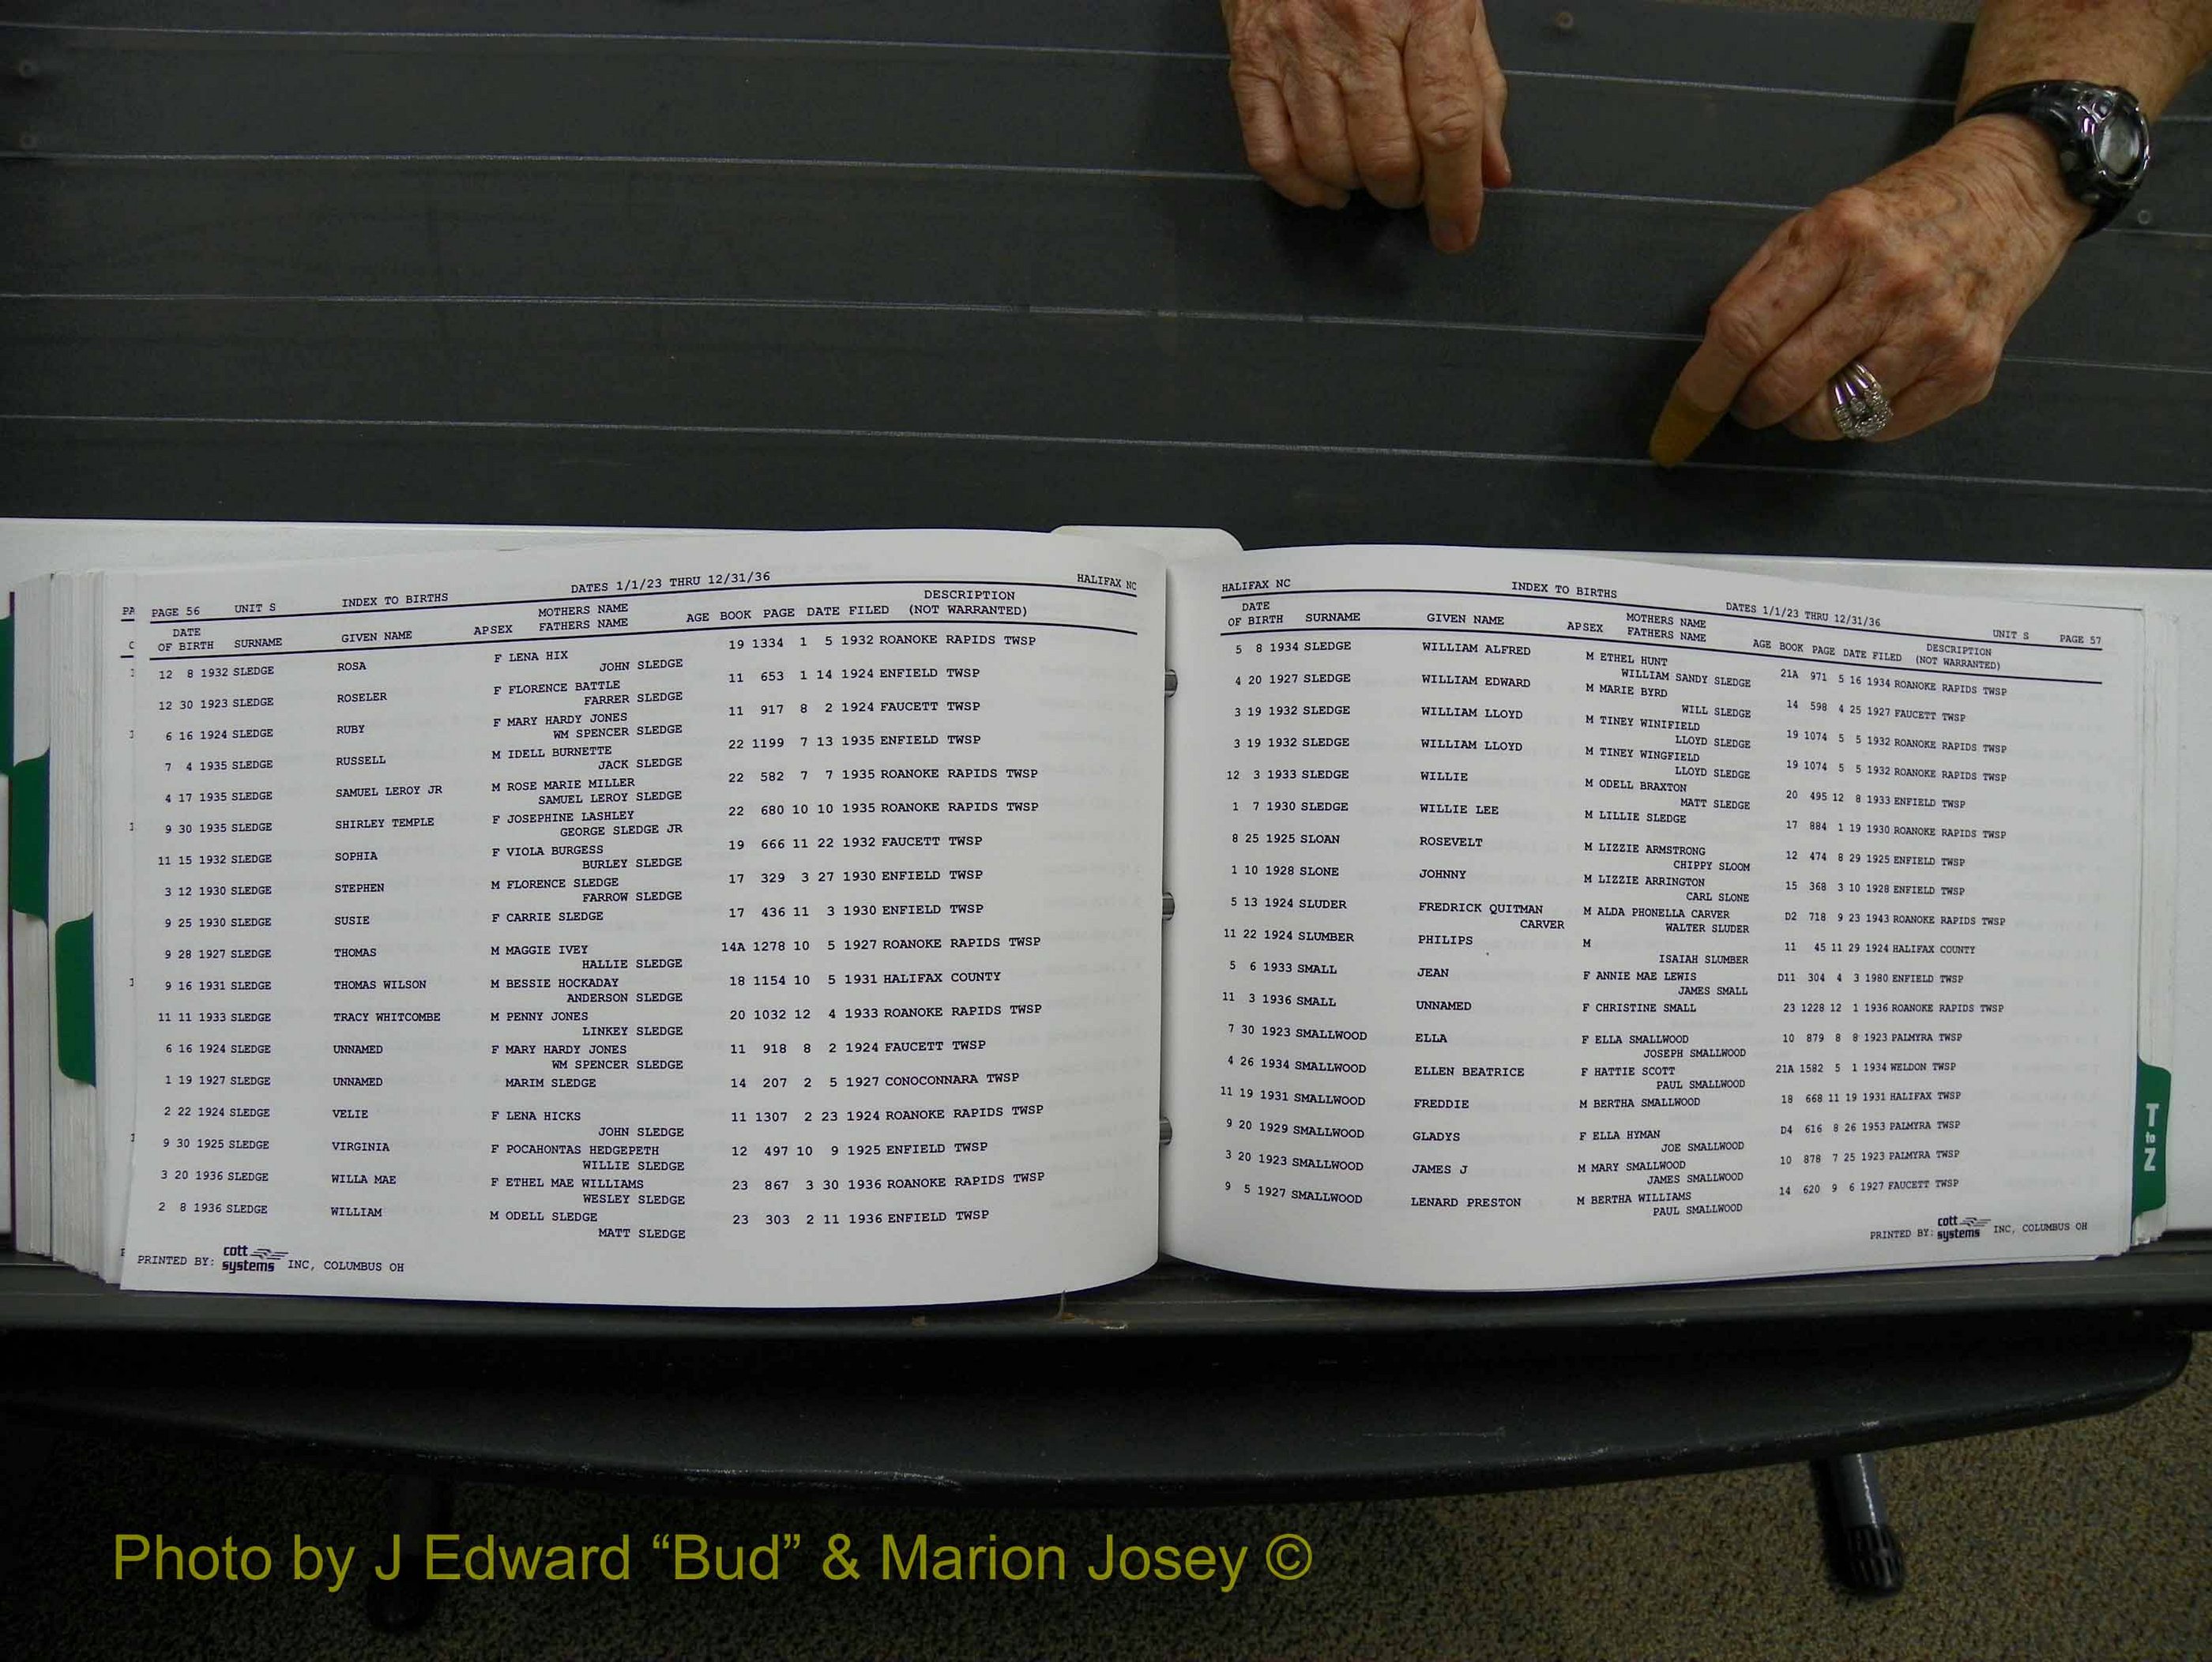 PAGE 56 UNIT S INDEX TO BIRTHS DATES 1/1/23 THRU 12/31/36 HALIFAX NC
DATE MOTHERS NAME DESCRIPTION
OF BIRTH SURNAME GIVEN NAME APSEX FATHERS NAME AGE BOOK PAGE DATE FILED (NOT WARRANTED)
12 8 1932 SLEDGE ROSA F LENA HIX 19 1334 1 5 1932 ROANOKE RAPIDS TWSP
JOHN SLEDGE
12 30 1923 SLEDGE ROSELER F FLORENCE BATTLE 11 653 1 14 1924 ENFIELD TWSP
FARRER SLEDGE
6 16 1924 SLEDGE RUBY F MARY HARDY JONES 11 917 8 2 1924 FAUCETT TWSP
WM SPENCER SLEDGE
7 4 1935 SLEDGE RUSSELL M IDELL BURNETTE 22 1199 7 13 1935 ENFIELD TWSP
JACK SLEDGE
4 17 1935 SLEDGE SAMUEL LEROY JR M ROSE MARIE MILLER 22 582 7 7 1935 ROANOKE RAPIDS TWSP
SAMUEL LEROY SLEDGE
9 30 1935 SLEDGE SHIRLEY TEMPLE F JOSEPHINE LASHLEY 22 680 10 10 1935 ROANOKE RAPIDS TWSP
GEORGE SLEDGE JR
11 15 1932 SLEDGE SOPHIA F VIOLA BURGESS 19 666 11 22 1932 FAUCETT TWSP
BURLEY SLEDGE
3 12 1930 SLEDGE STEPHEN M FLORENCE SLEDGE 17 329 3 27 1930 ENFIELD TWSP
FARROW SLEDGE
9 25 1930 SLEDGE SUSIE F CARRIE SLEDGE 17 436 11 3 1930 ENFIELD TWSP
9 28 1927 SLEDGE THOMAS M MAGGIE IVEY 14A 1278 10 5 1927 ROANOKE RAPIDS TWSP
HALLIE SLEDGE
9 16 1931 SLEDGE THOMAS WILSON M BESSIE HOCKADAY 18 1154 10 5 1931 HALIFAX COUNTY
ANDERSON SLEDGE
11 11 1933 SLEDGE TRACY WHITCOMBE M PENNY JONES 20 1032 12 4 1933 ROANOKE RAPIDS TWSP
LINKEY SLEDGE
6 16 1924 SLEDGE UNNAMED F MARY HARDY JONES 11 918 8 2 1924 FAUCETT TWSP
WM SPENCER SLEDGE
1 19 1927 SLEDGE UNNAMED MARIM SLEDGE 14 207 2 5 1927 CONOCONNARA TWSP
2 22 1924 SLEDGE VELIE F LENA HICKS 11 1307 2 23 1924 ROANOKE RAPIDS TWSP
JOHN SLEDGE
9 30 1925 SLEDGE VIRGINIA F POCAHONTAS HEDGEPETH 12 497 10 9 1925 ENFIELD TWSP
WILLIE SLEDGE
3 20 1936 SLEDGE WILLA MAE F ETHEL MAE WILLIAMS 23 867 3 30 1936 ROANOKE RAPIDS TWSP
WESLEY SLEDGE
2 8 1936 SLEDGE WILLIAM M ODELL SLEDGE 23 303 2 11 1936 ENFIELD TWSP
MATT SLEDGE
PRINTED BY: cott systems INC, COLUMBUS OH
HALIFAX NC INDEX TO BIRTHS DATES 1/1/23 THRU 12/31/36 UNIT S PAGE 57
DATE MOTHERS NAME DESCRIPTION
OF BIRTH SURNAME GIVEN NAME APSEX FATHERS NAME AGE BOOK PAGE DATE FILED (NOT WARRANTED)
5 8 1934 SLEDGE WILLIAM ALFRED M ETHEL HUNT 21A 971 5 16 1934 ROANOKE RAPIDS TWSP
WILLIAM SANDY SLEDGE
4 20 1927 SLEDGE WILLIAM EDWARD M MARIE BYRD 14 598 4 25 1927 FAUCETT TWSP
WILL SLEDGE
3 19 1932 SLEDGE WILLIAM LLOYD M TINEY WINIFIELD 19 1074 5 5 1932 ROANOKE RAPIDS TWSP
LLOYD SLEDGE
3 19 1932 SLEDGE WILLIAM LLOYD M TINEY WINGFIELD 19 1074 5 5 1932 ROANOKE RAPIDS TWSP
LLOYD SLEDGE
12 3 1933 SLEDGE WILLIE M ODELL BRAXTON 20 495 12 8 1933 ENFIELD TWSP
MATT SLEDGE
1 7 1930 SLEDGE WILLIE LEE M LILLIE SLEDGE 17 884 1 19 1930 ROANOKE RAPIDS TWSP
8 25 1925 SLOAN ROSEVELT M LIZZIE ARMSTRONG 12 474 8 29 1925 ENFIELD TWSP
CHIPPY SLOOM
1 10 1928 SLONE JOHNNY M LIZZIE ARRINGTON 15 368 3 10 1928 ENFIELD TWSP
CARL SLONE
5 13 1924 SLUDER FREDRICK QUITMAN M ALDA PHONELLA CARVER D2 718 9 23 1943 ROANOKE RAPIDS TWSP
CARVER WALTER SLUDER
11 22 1924 SLUMBER PHILIPS M 11 45 11 29 1924 HALIFAX COUNTY
ISAIAH SLUMBER
5 6 1933 SMALL JEAN F ANNIE MAE LEWIS D11 304 4 3 1980 ENFIELD TWSP
JAMES SMALL
11 3 1936 SMALL UNNAMED F CHRISTINE SMALL 23 1228 12 1 1936 ROANOKE RAPIDS TWSP
7 30 1923 SMALLWOOD ELLA F ELLA SMALLWOOD 10 879 8 8 1923 PALMYRA TWSP
JOSEPH SMALLWOOD
4 26 1934 SMALLWOOD ELLEN BEATRICE F HATTIE SCOTT 21A 1582 5 1 1934 WELDON TWSP
PAUL SMALLWOOD
11 19 1931 SMALLWOOD FREDDIE M BERTHA SMALLWOOD 18 668 11 19 1931 HALIFAX TWSP
9 20 1929 SMALLWOOD GLADYS F ELLA HYMAN D4 616 8 26 1953 PALMYRA TWSP
JOE SMALLWOOD
3 20 1923 SMALLWOOD JAMES J M MARY SMALLWOOD 10 878 7 25 1923 PALMYRA TWSP
JAMES SMALLWOOD
9 5 1927 SMALLWOOD LENARD PRESTON M BERTHA WILLIAMS 14 620 9 6 1927 FAUCETT TWSP
PAUL SMALLWOOD
PRINTED BY: cott systems INC, COLUMBUS OH
T to Z
Photo by J Edward “Bud” & Marion Josey ©